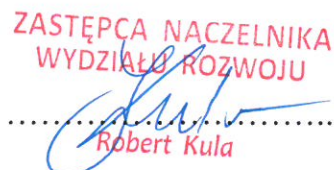 ZASTĘPCA NACZELNIKA
WYDZIAŁU ROZWOJU
Robert Kula